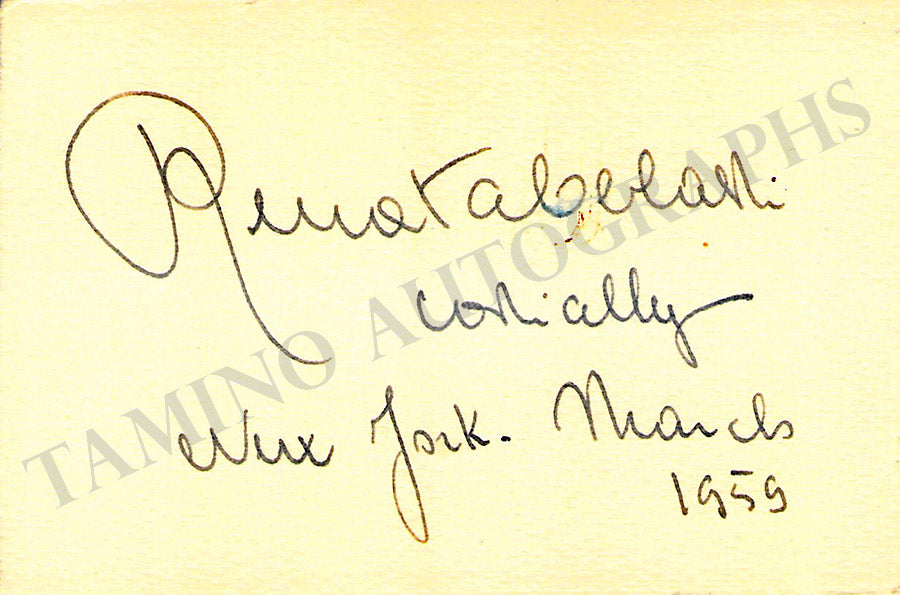 Renata Tebaldi
cordially
New York. March
1959
TAMINO AUTOGRAPHS